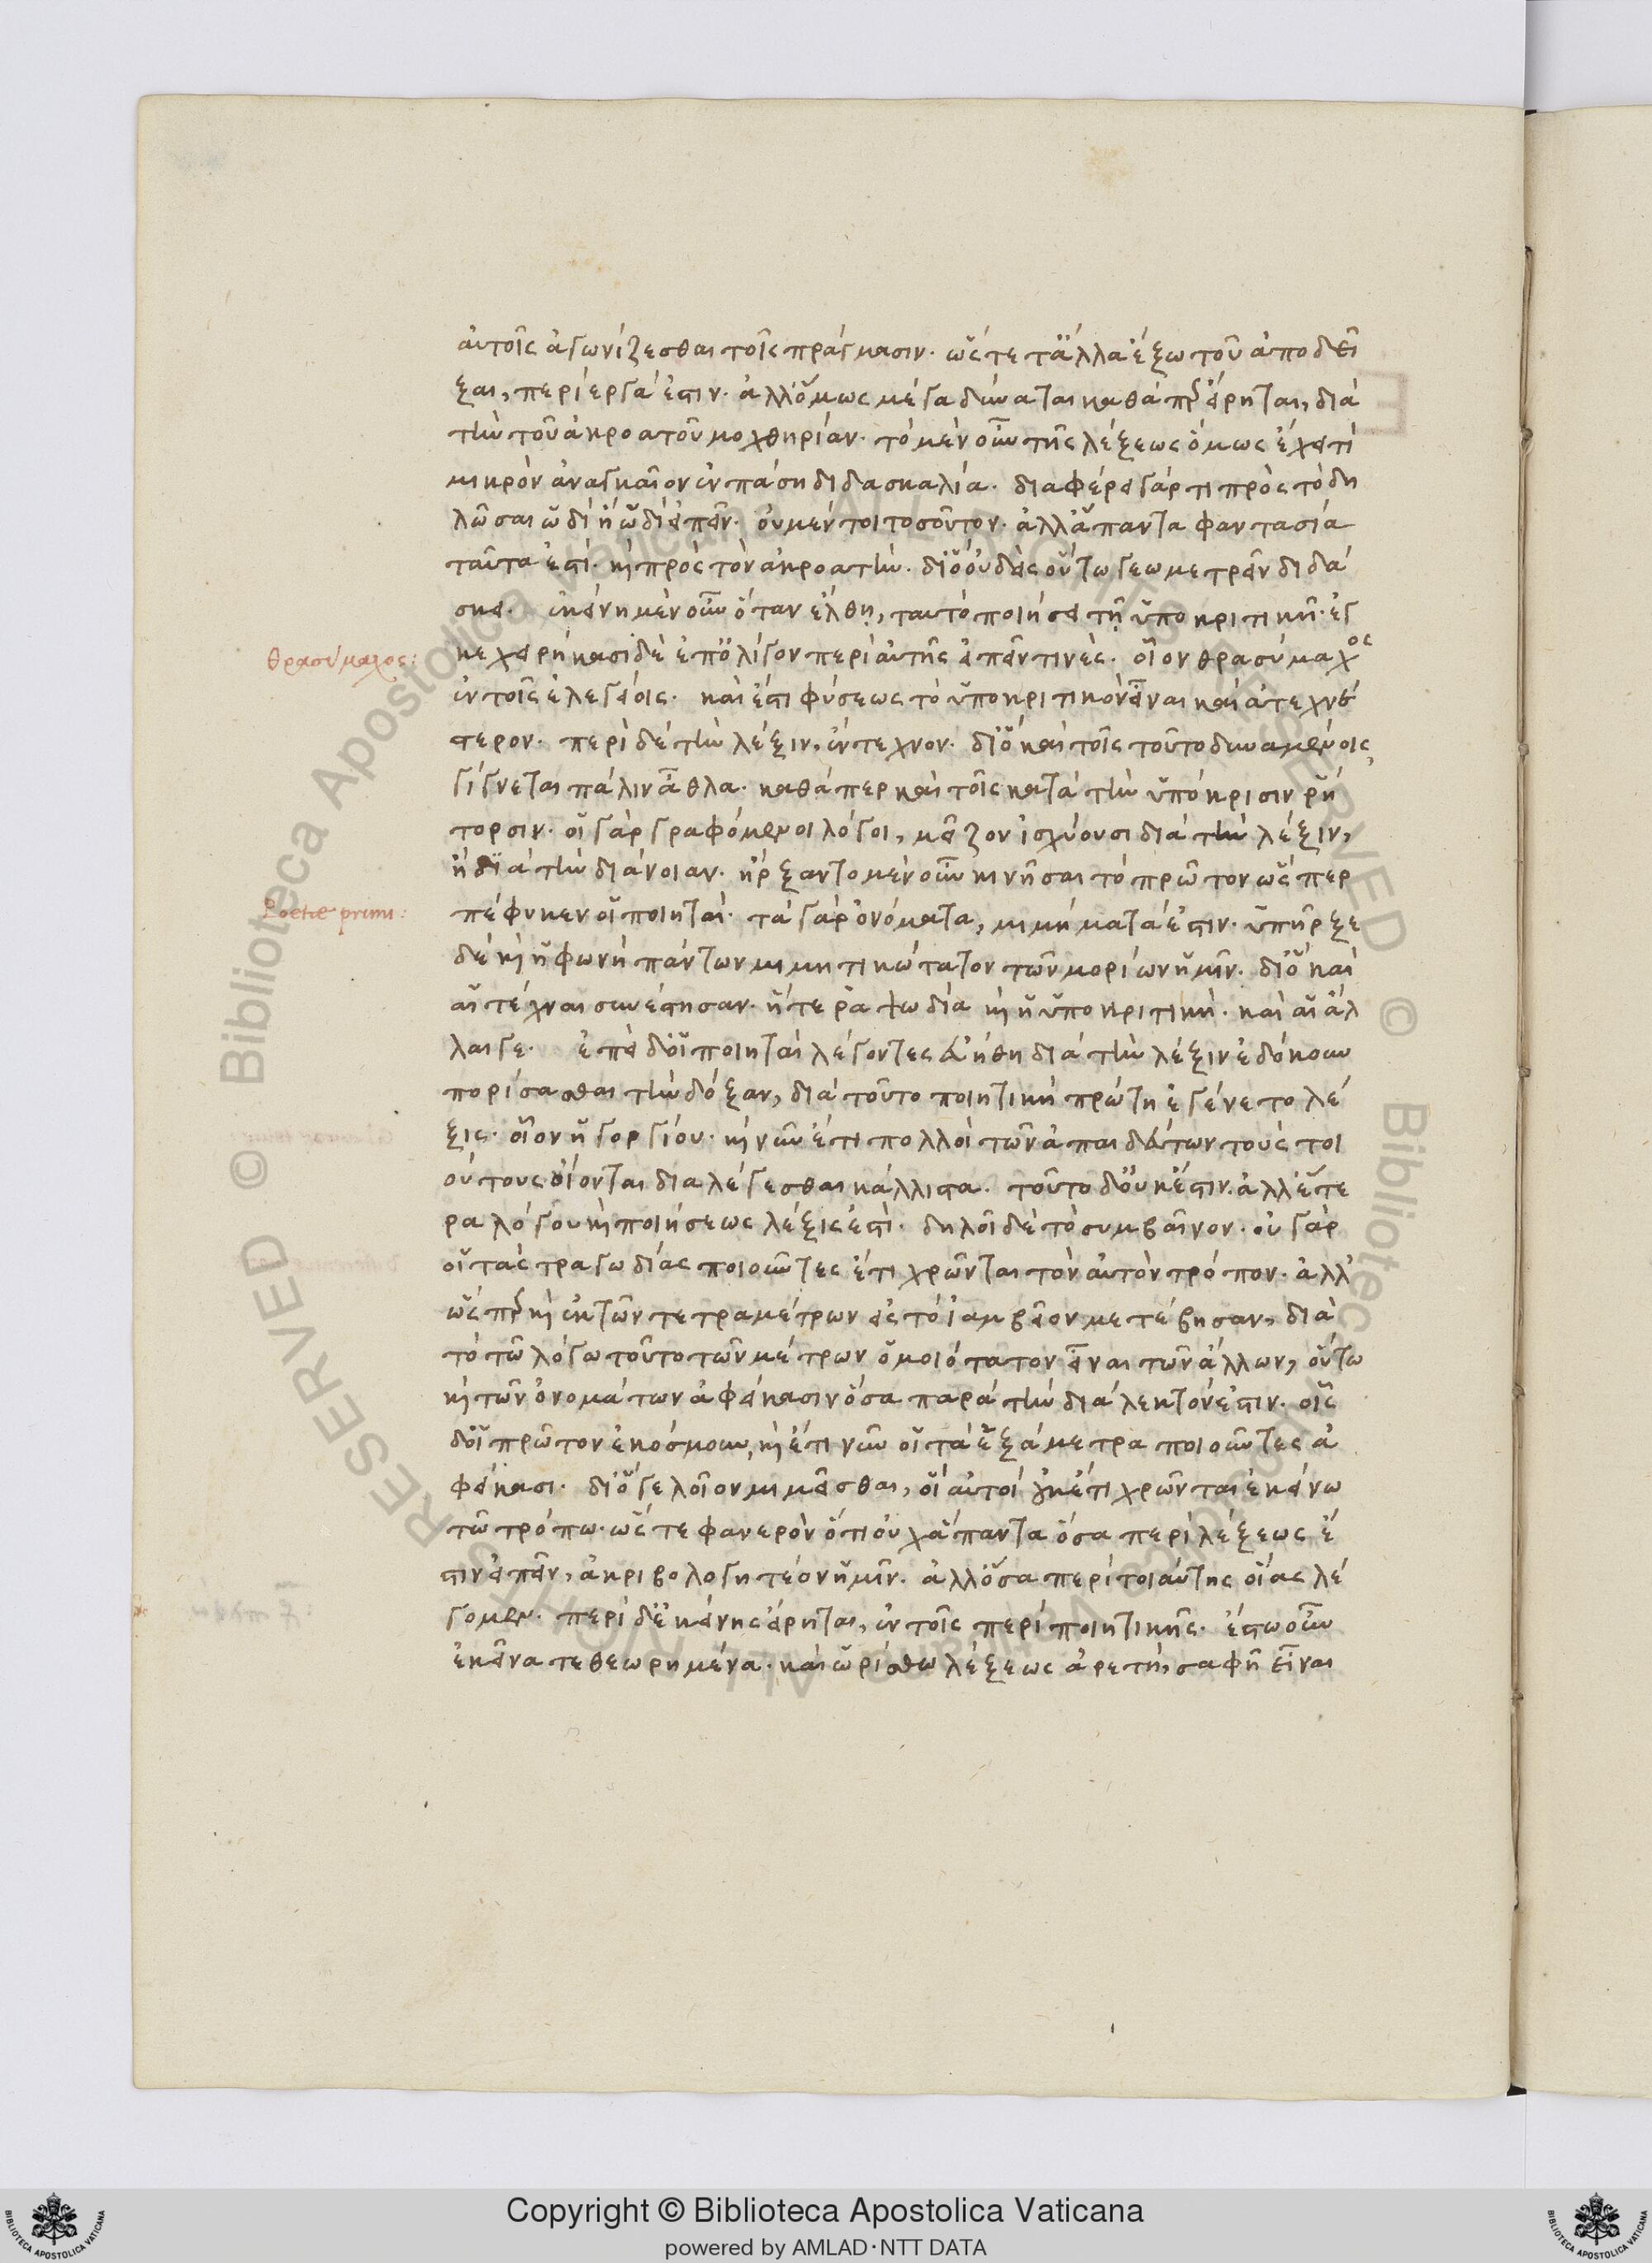 αὐτοῖς ἀγωνίζεσθαι τοῖς πράγμασιν· ὥςτε τἄλλα ἔξω τοῦ ἀποδεῖ
ξαι, περίεργά ἐστιν· ἀλλ' ὅμως μέγα δύναται καθάπερ εἴρηται, διὰ
τὴν τοῦ ἀκροατοῦ μοχθηρίαν· τὸ μὲν οὖν τῆς λέξεως ὅμως ἔχει τὶ
μικρὸν ἀναγκαῖον ἐν πάση διδασκαλία· διαφέρει γάρ τι πρὸς τὸ δη
λῶσαι ὡδὶ ἢ ὡδὶ εἰπεῖν· οὐ μέν τοι τοσοῦτον· ἀλλ' ἅπαντα φαντασία
ταῦτα ἐστὶ· καὶ πρὸς τὸν ἀκροατὴν· διὸ οὐδεὶς οὕτω γεωμετρεῖν διδά
σκει· ἐκείνη μὲν οὖν ὅταν ἔλθη, ταυτὸ ποιήσει τῆ ὑποκριτικῆ· ἐγ
κεχειρήκασι δὲ ἐπ' ὀλίγον περὶ αὐτῆς εἰπεῖν τινὲς· οἷον θρασύμαχος
θρασύμαχος:
ἐν τοῖς ἐλεγείοις· καὶ ἔστι φύσεως τὸ ὑποκριτικὸν εἶναι καὶ ἀτεχνέ
στερον· περὶ δὲ τὴν λέξιν, ἔντεχνον· διὸ καὶ τοῖς τοῦτο δυναμένοις
γίγνεται πάλιν ἆθλα· καθάπερ καὶ τοῖς κατὰ τὴν ὑπόκρισιν ῥή
τορσιν· οἱ γὰρ γραφόμενοι λόγοι, μεῖζον ἰσχύουσι διὰ τὴν λέξιν,
ἢ διὰ τὴν διάνοιαν· ἤρξαντο μὲν οὖν κινῆσαι τὸ πρῶτον ὥςπερ
Poetæ primi:
πέφυκεν οἱ ποιηταὶ· τὰ γὰρ ὀνόματα, μιμήματά ἐστιν· ὑπῆρξε
δὲ καὶ ἡ φωνὴ πάντων μιμητικώτατον τῶν μορίων ἡμῖν· διὸ καὶ
αἱ τέχναι συνέστησαν· ἥτε ῥαψωδία καὶ ἡ ὑποκριτικὴ· καὶ αἱ ἄλ
λαι γε· ἐπεὶ δ' οἱ ποιηταὶ λέγοντες εὐήθη διὰ τὴν λέξιν ἐδόκουν
πορίσασθαι τὴν δόξαν, διὰ τοῦτο ποιητικὴ πρώτη ἐγένετο λέ
ξις· οἷον ἡ γοργίου· καὶ νῦν ἔτι πολλοὶ τῶν ἀπαιδεύτων τοὺς τοι
ούτους οἴονται διαλέγεσθαι κάλλιστα. τοῦτο δ' οὐκ ἔστιν· ἀλλ' ἑτέ
ρα λόγου καὶ ποιήσεως λέξις ἐστὶ· δηλοῖ δὲ τὸ συμβαῖνον· οὐ γὰρ
οἱ τὰς τραγωδίας ποιοῦντες ἔτι χρῶνται τὸν αὐτὸν τρόπον· ἀλλ'
ὥςπερ καὶ ἐκ τῶν τετραμέτρων εἰς τὸ ἰαμβεῖον μετέβησαν, διὰ
τὸ τῶ λόγω τοῦτο τῶν μέτρων ὁμοιότατον εἶναι τῶν ἄλλων, οὕτω
καὶ τῶν ὀνομάτων ἀφείκασιν ὅσα παρὰ τὴν διάλεκτόν ἐστιν· οἷς
δ' οἱ πρῶτον ἐκόσμουν, καὶ ἔτι νῦν οἱ τὰ ἑξάμετρα ποιοῦντες ἀ
φείκασι· διὸ γελοῖον μιμεῖσθαι, οἳ αὐτοὶ οὐκέτι χρῶνται ἐκείνω
τῶ τρόπω· ὥςτε φανερὸν ὅτι οὐχ ἅπαντα ὅσα περὶ λέξεως ἔ
στιν εἰπεῖν, ἀκριβολογητέον ἡμῖν· ἀλλ' ὅσα περὶ τοιαύτης οἵας λέ
γομεν· περὶ δ' ἐκείνης εἴρηται, ἐν τοῖς περὶ ποιητικῆς· ἔστω οὖν
ἐκεῖνα τεθεωρημένα· καὶ ὡρίσθω λέξεως ἀρετὴ, σαφῆ εἶναι
Copyright © Biblioteca Apostolica Vaticana
powered by AMLAD·NTT DATA